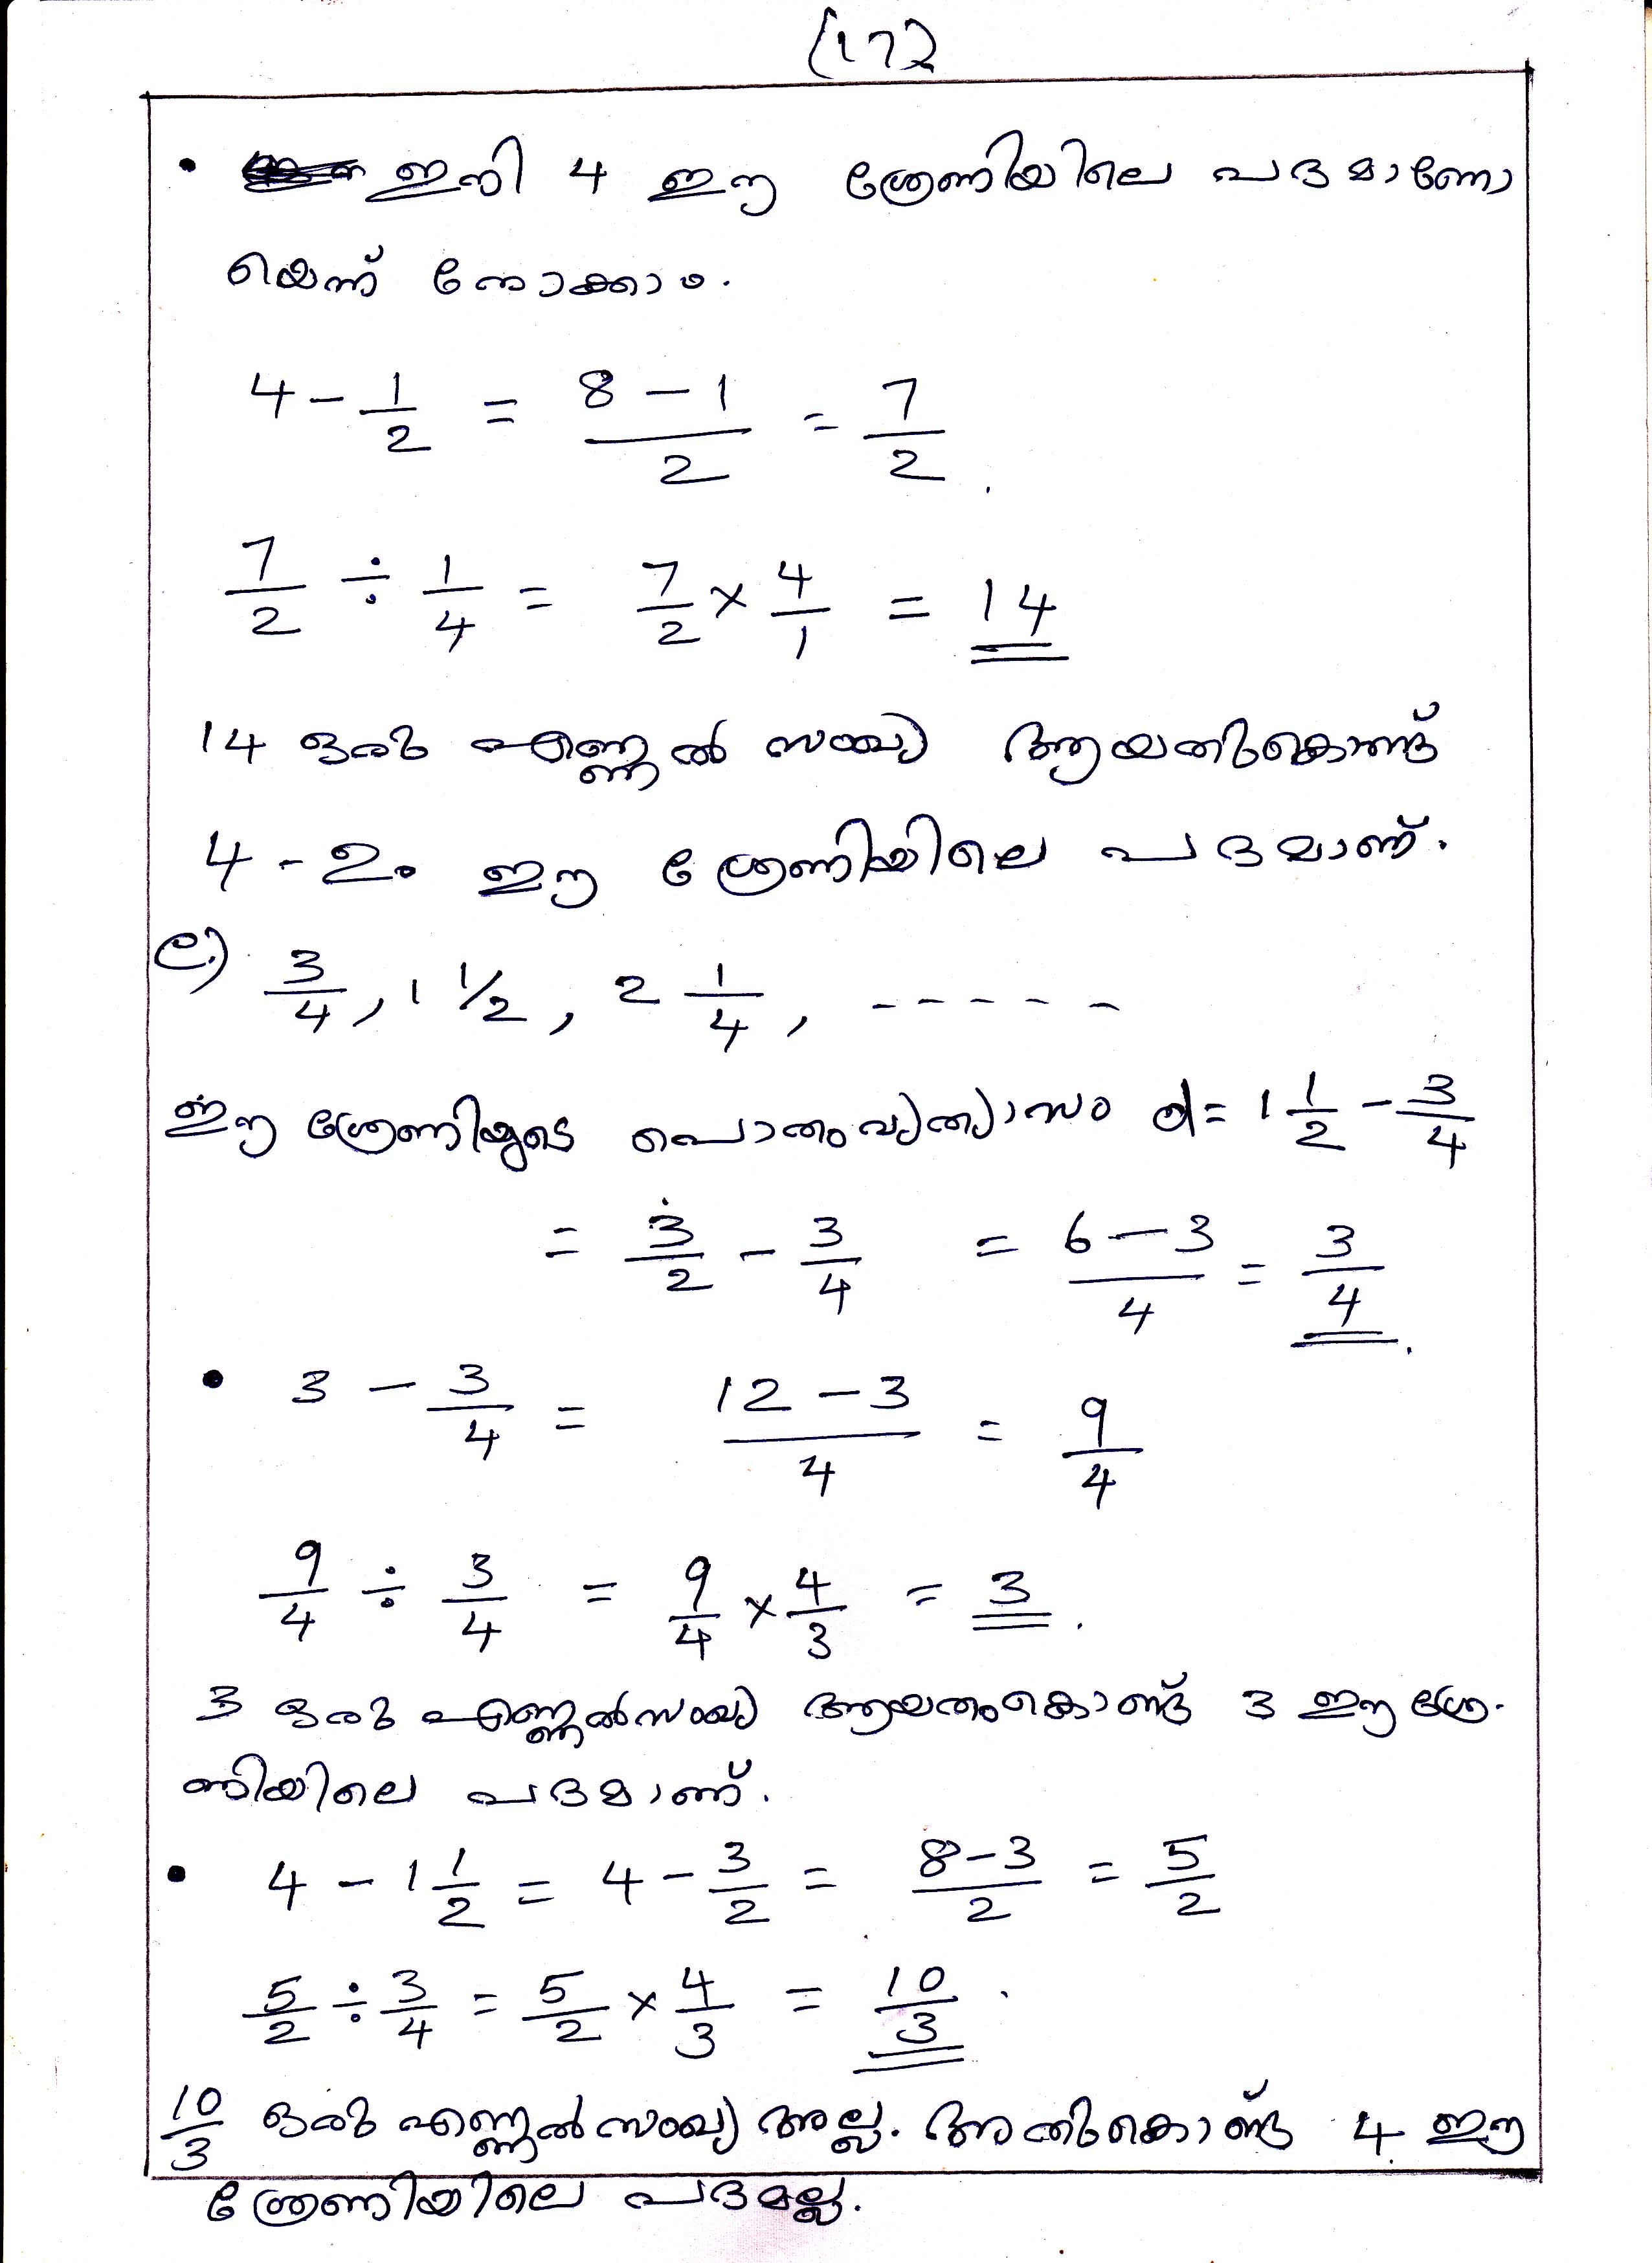 (17)
• ഇനി 4 ഈ ശ്രേണിയിലെ പദമാണോ
യെന്ന് നോക്കാം.
4 - 1/2 = (8 - 1)/2 = 7/2
7/2 ÷ 1/4 = 7/2 × 4/1 = 14
14 ഒരു എണ്ണൽ സംഖ്യ ആയതുകൊണ്ട്
4 - ഉം ഈ ശ്രേണിയിലെ പദമാണ്.
3/4, 1 1/2, 2 1/4, -----
ഈ ശ്രേണിയുടെ പൊതുവ്യത്യാസം d = 1 1/2 - 3/4
= 3/2 - 3/4 = (6 - 3)/4 = 3/4.
• 3 - 3/4 = (12 - 3)/4 = 9/4
9/4 ÷ 3/4 = 9/4 × 4/3 = 3.
3 ഒരു എണ്ണൽസംഖ്യ ആയതുകൊണ്ട് 3 ഈ ശ്രേ-
ണിയിലെ പദമാണ്.
• 4 - 1 1/2 = 4 - 3/2 = (8 - 3)/2 = 5/2
5/2 ÷ 3/4 = 5/2 × 4/3 = 10/3.
10/3 ഒരു എണ്ണൽസംഖ്യ അല്ല. അതുകൊണ്ട് 4 ഈ
ശ്രേണിയിലെ പദമല്ല.